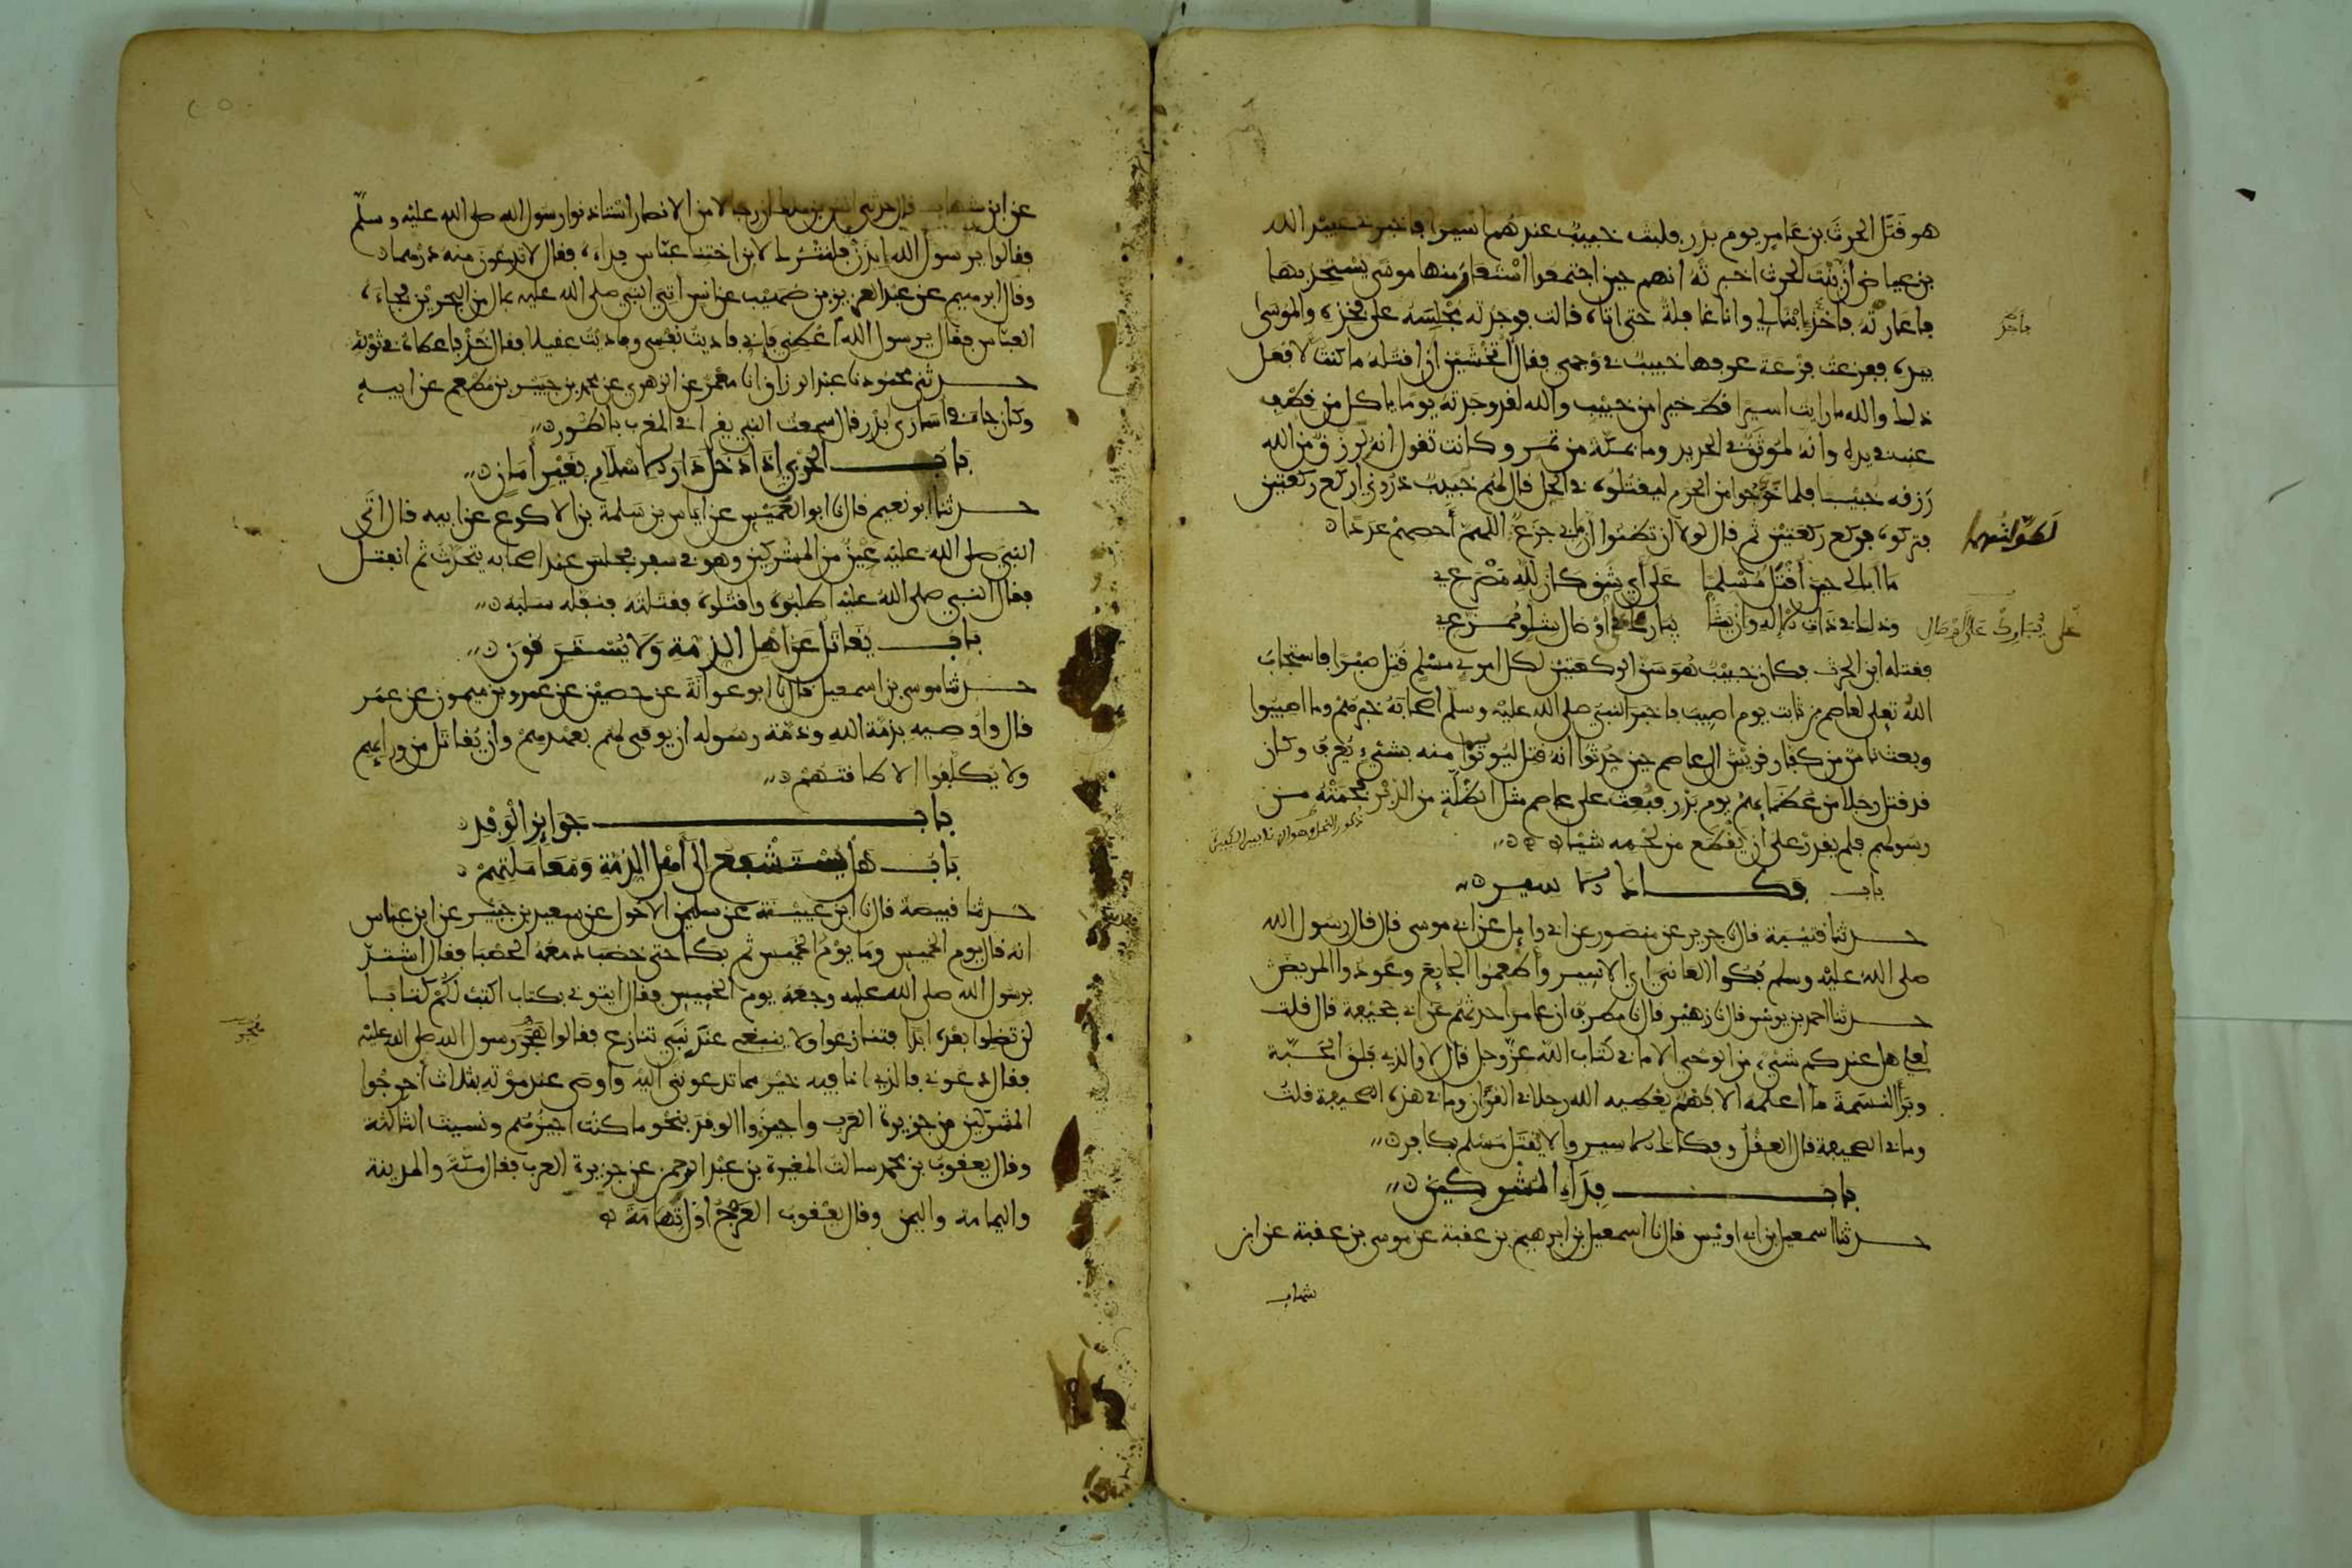 هو قتل الحرث بن عامر يوم بدر فلبث خبيب عندهم اسيرا فاخبرني عبيد الله
بن عياض ان بنت الحرث اخبرته انهم حين اجتمعوا استعار منها موسى يستحد بها
فاعارته فاخذ ابنا لي وانا غافلة حتى اتاه قالت فوجدته مجلسه على فخذه والموسى
بيده ففزعت فزعة عرفها خبيب في وجهي فقال اتخشين ان اقتله ما كنت لافعل
ذلك والله ما رايت اسيرا قط خيرا من خبيب والله لقد وجدته يوما ياكل من قطف
عنب في يده وانه لموثق في الحديد وما بمكة من ثمر وكانت تقول انه لرزق من الله
رزقه خبيبا فلما خرجوا من الحرم ليقتلوه في الحل قال لهم خبيب ذروني اركع ركعتين
فتركوه فركع ركعتين ثم قال لولا ان تظنوا ان ما بي جزع اللهم احصهم عددا
لطولتهما
ما ابالي حين اقتل مسلما على اي شق كان لله مصرعي
وذلك في ذات الاله وان يشا يبارك في اوصال شلو ممزعي
فقتله ابن الحرث فكان خبيب هو سن الركعتين لكل امرئ مسلم قتل صبرا فاستجاب
الله تعلى لعاصم بن ثابت يوم اصيب فاخبر النبي صلى الله عليه وسلم اصحابه خبرهم وما اصيبوا
وبعث ناس من كفار قريش الى عاصم حين حدثوا انه قتل ليوتوا منه بشيء يعرف وكان
قد قتل رجلا من عظمائهم يوم بدر فبعث على عاصم مثل الظلة من الدبر فحمته من
رسولهم فلم يقدر على ان يقطع من لحمه شيئا
باب فكاك الاسير
حدثنا قتيبة قال نا جرير عن منصور عن ابي وايل عن ابي موسى قال قال رسول الله
صلى الله عليه وسلم فكوا العاني اي الاسير واطعموا الجايع وعودوا المريض
حدثنا احمد بن يونس قال نا زهير قال نا مطرف ان عامرا حدثهم عن ابي جحيفة قال قلت
لعلي هل عندكم شيء من الوحي الا ما في كتاب الله عز وجل قال لا والذي فلق الحبة
وبرا النسمة ما اعلمه الا فهم يعطيه الله رجلا في القران وما في هذه الصحيفة قلت
وما في الصحيفة قال العقل وفكاك الاسير والا يقتل مسلم بكافر
باب فداء المشركين
حدثنا اسمعيل بن ابي اويس قال نا اسمعيل بن ابرهيم بن عقبة عن موسى بن عقبة عن ابن
شهاب
عن ابن شهاب قال حدثني انس بن ملك ان رجالا من الانصار استاذنوا رسول الله صلى الله عليه وسلم
فقالوا يرسول الله ايذن فلنترك لابن اختنا عباس فداءه فقال لا تدعون منه درهما
وقال ابرهيم عن عبد العزيز بن صهيب عن انس اتي النبي صلى الله عليه بمال من البحرين فجاءه
العباس فقال يرسول الله اعطني فاني فاديت نفسي وفاديت عقيلا فقال خذ فاعطاه في ثوبه
حدثني محمود نا عبد الرزاق انا معمر عن الزهري عن محمد بن جبير بن مطعم عن ابيه
وكان جاء في اسارى بدر قال سمعت النبي يقرا في المغرب بالطور
باب الحربي اذا دخل دار الاسلام بغير امان
حدثنا ابو نعيم قال نا ابو العميس عن اياس بن سلمة بن الاكوع عن ابيه قال اتى
النبي صلى الله عليه عين من المشركين وهو في سفر فجلس عند اصحابه يتحدث ثم انفتل
فقال النبي صلى الله عليه اطلبوه واقتلوه فقتلته فنفله سلبه
باب يقاتل عن اهل الذمة ولا يسترقون
حدثنا موسى بن اسمعيل قال نا ابو عوانة عن حصين عن عمرو بن ميمون عن عمر
قال واوصيه بذمة الله وذمة رسوله ان يوفى لهم بعهدهم وان يقاتل من ورائهم
ولا يكلفوا الا طاقتهم
باب جوايز الوفد
باب هل يستشفع الى اهل الذمة ومعاملتهم
حدثنا قبيصة قال نا ابن عيينة عن سليمن الاحول عن سعيد بن جبير عن ابن عباس
انه قال يوم الخميس وما يوم الخميس ثم بكا حتى خضب دمعه الحصبا فقال اشتد
برسول الله صلى الله عليه وجعه يوم الخميس فقال ايتوني بكتاب اكتب لكم كتابا
لن تضلوا بعده ابدا فتنازعوا ولا ينبغي عند نبي تنازع فقالوا هجر رسول الله صلى الله عليه
فقال دعوني فالذي انا فيه خير مما تدعونني اليه واوصى عند موته بثلاث اخرجوا
المشركين من جزيرة العرب واجيزوا الوفد بنحو ما كنت اجيزهم ونسيت الثالثة
وقال يعقوب بن محمد سالت المغيرة بن عبد الرحمن عن جزيرة العرب فقال مكة والمدينة
واليمامة واليمن وقال يعقوب العرج اول تهامة